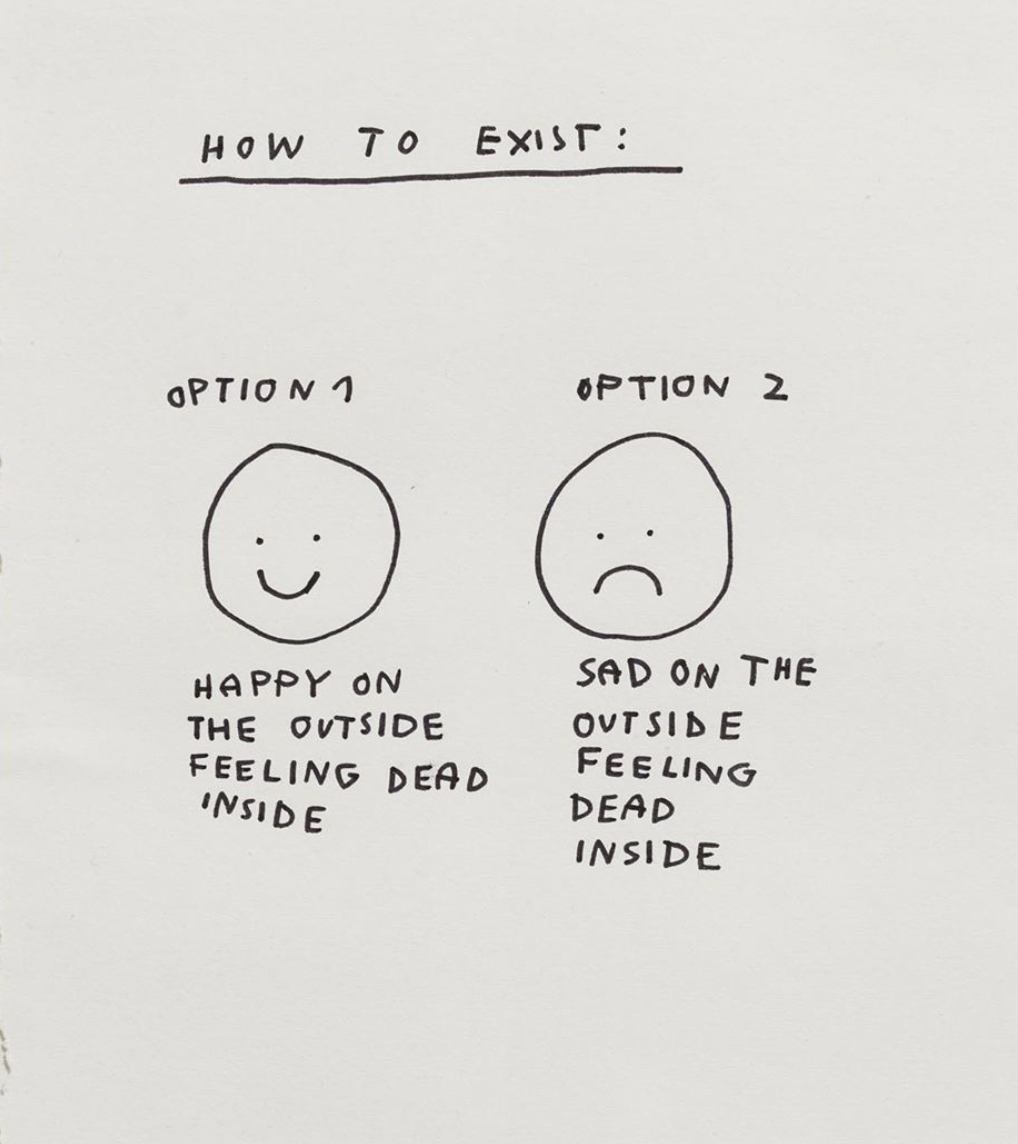 HOW TO EXIST:
OPTION 1
HAPPY ON
THE OUTSIDE
FEELING DEAD
INSIDE
OPTION 2
SAD ON THE
OUTSIDE
FEELING
DEAD
INSIDE